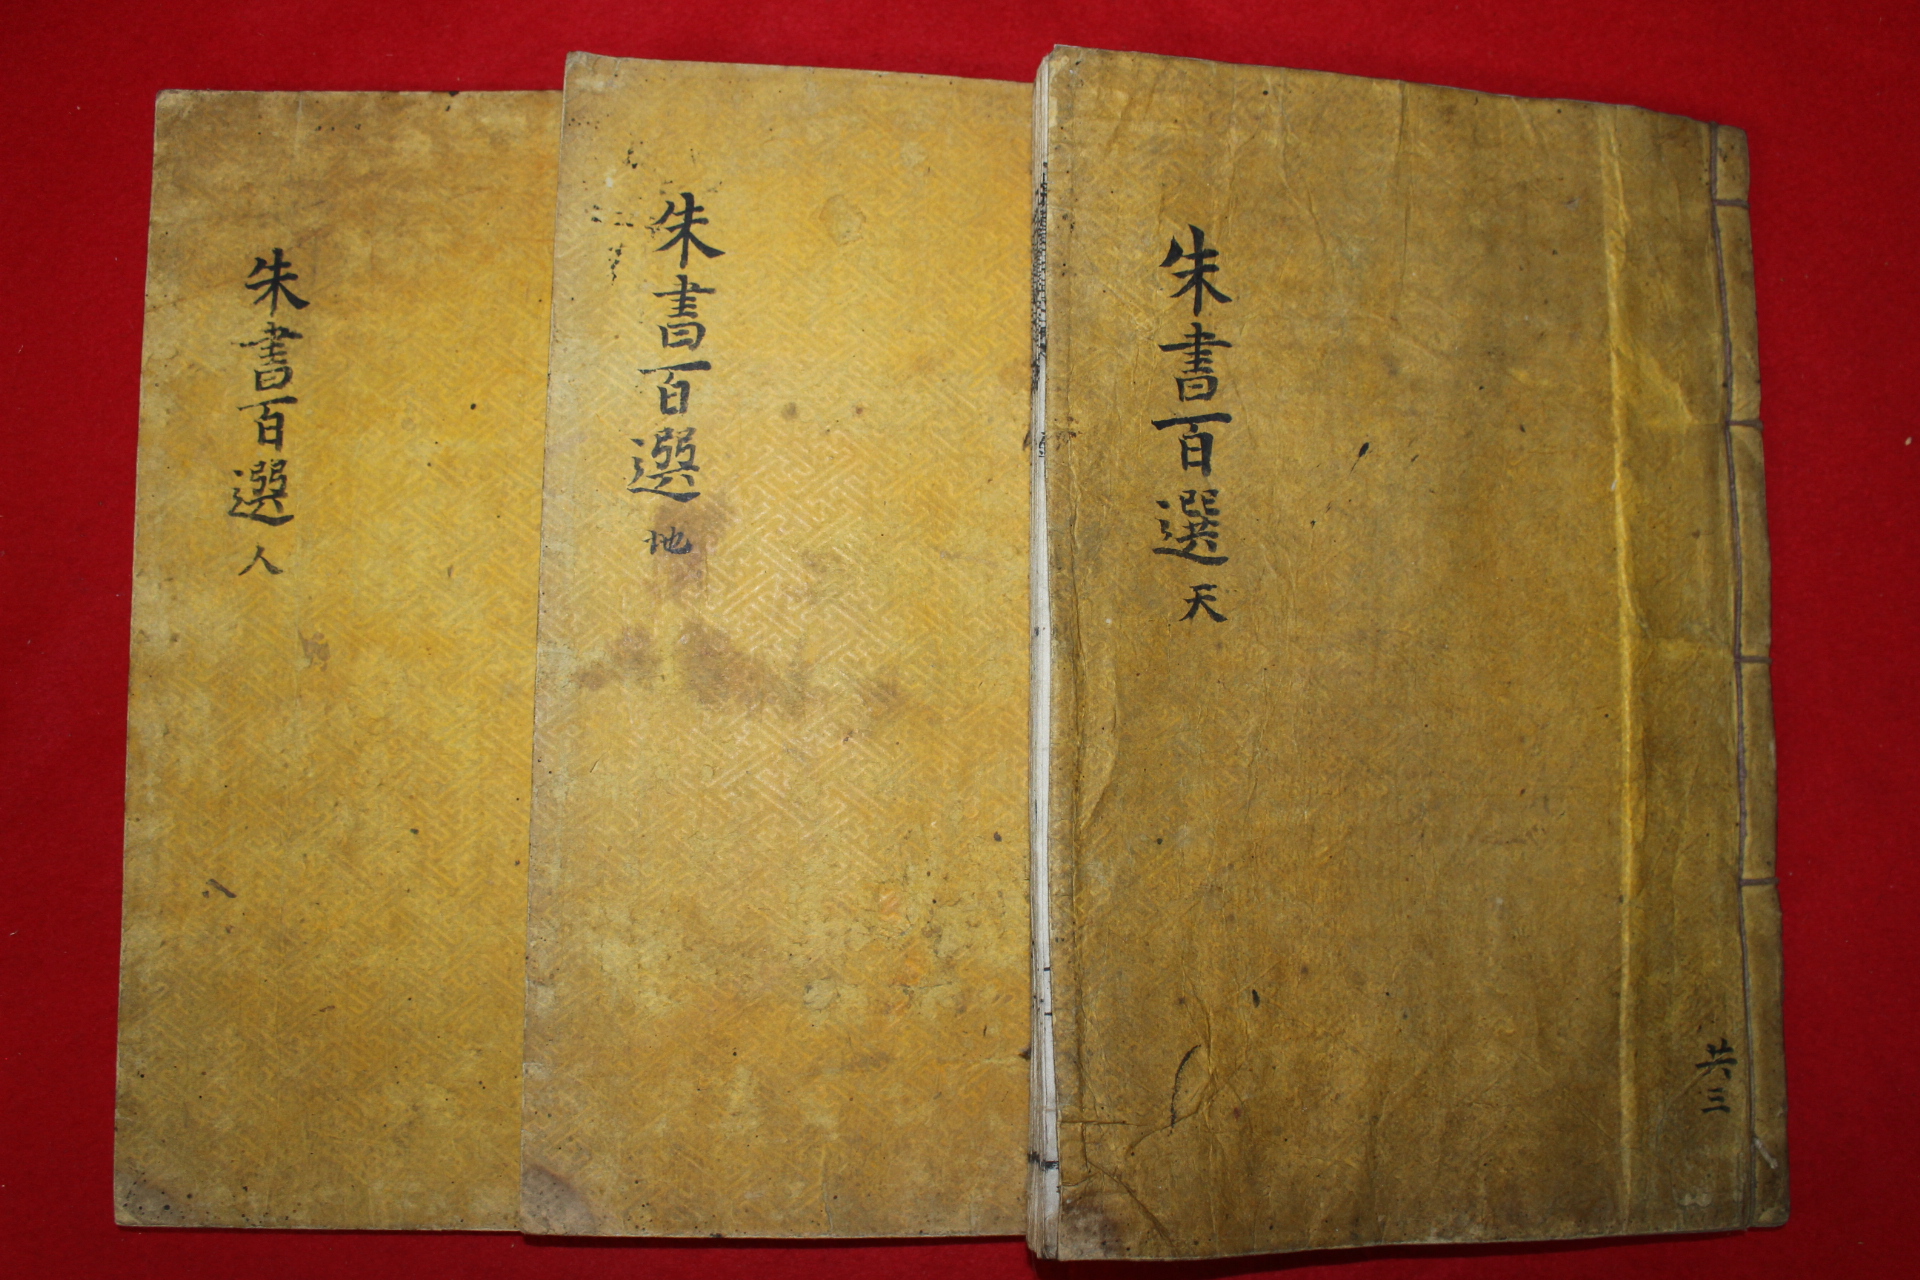 朱書百選 天
共三
朱書百選 地
朱書百選 人